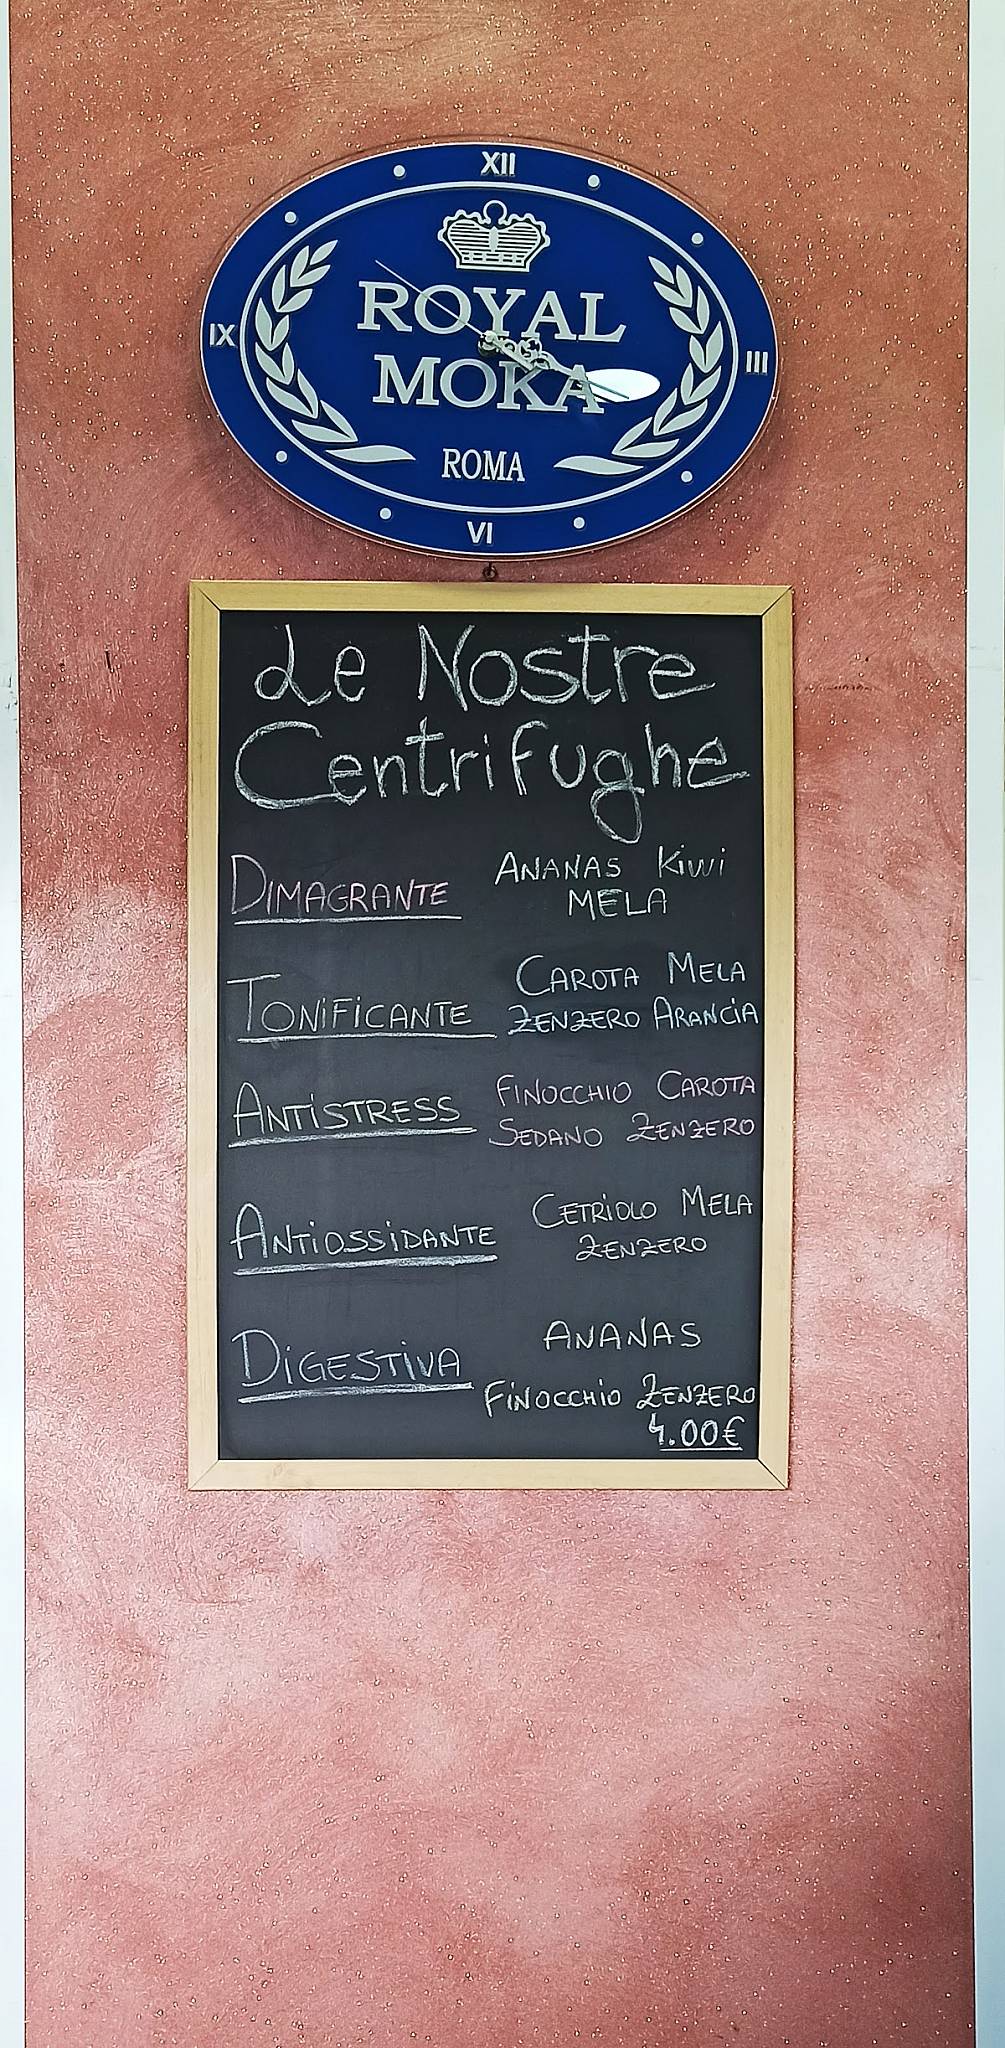 XII
IX
III
ROYAL
MOKA
ROMA
VI
Le Nostre
Centrifughe
DIMAGRANTE
ANANAS KIWI
MELA
TONIFICANTE
CAROTA MELA
ZENZERO ARANCIA
ANTISTRESS
FINOCCHIO CAROTA
SEDANO ZENZERO
ANTIOSSIDANTE
CETRIOLO MELA
ZENZERO
DIGESTIVA
ANANAS
FINOCCHIO ZENZERO
4.00€